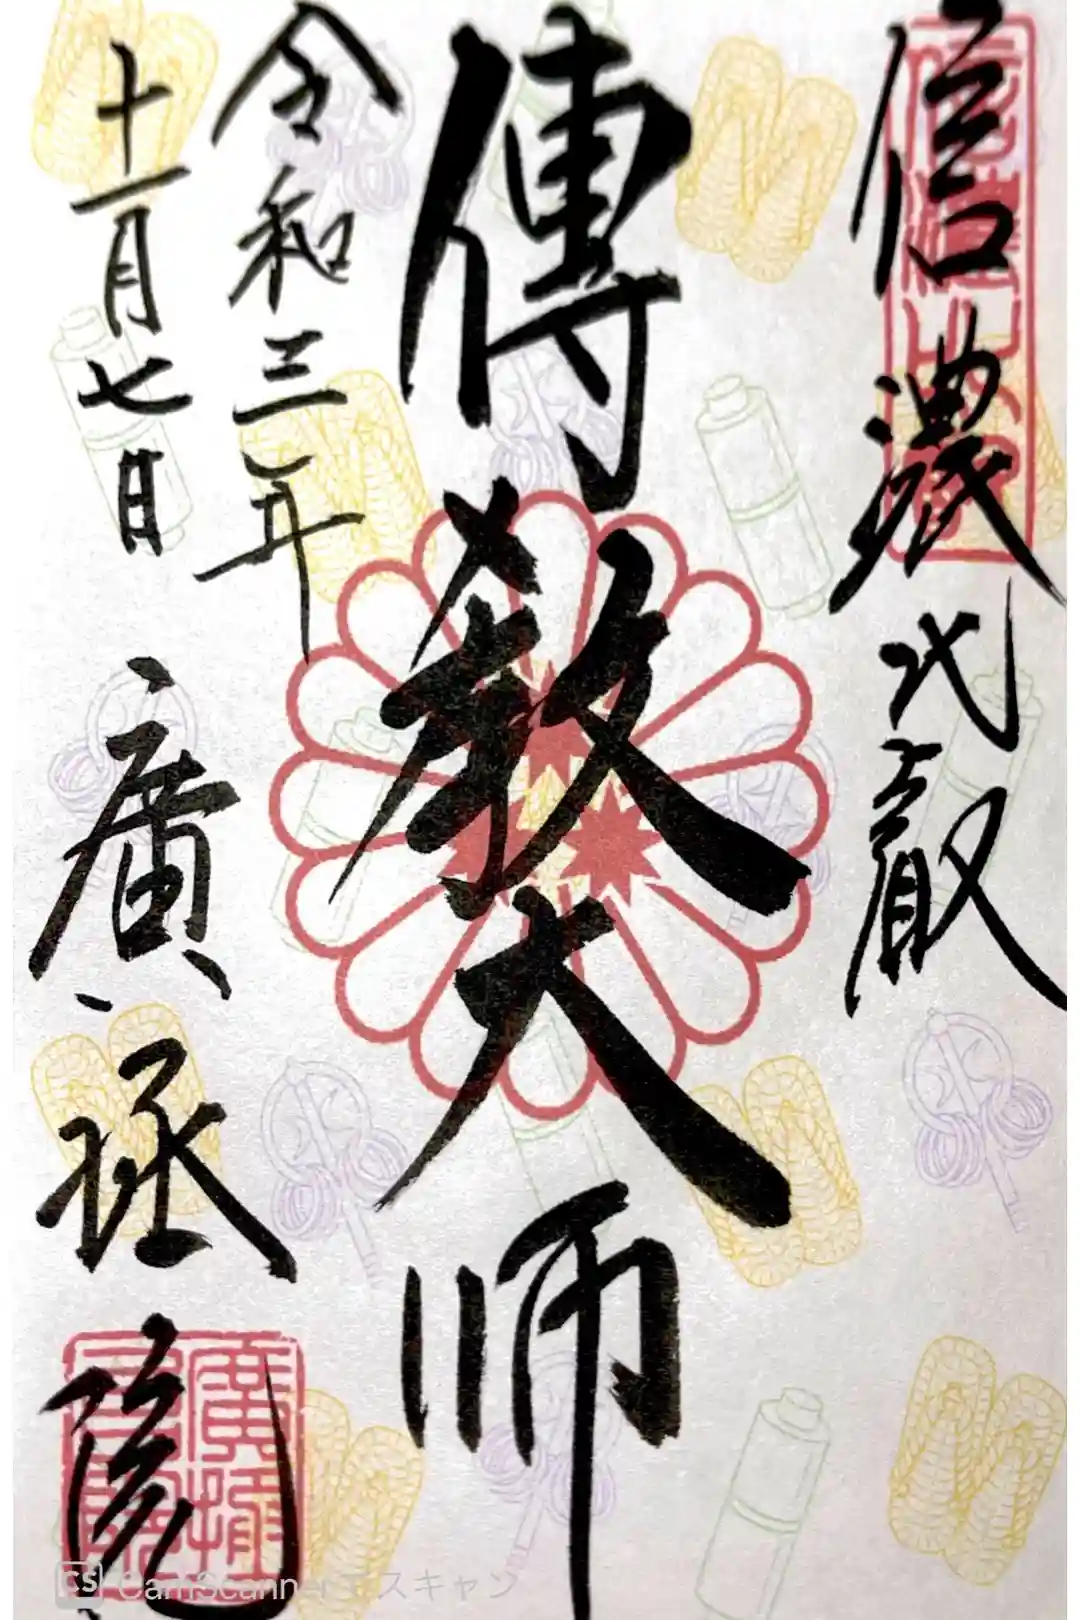 信濃比叡
傳教大师
令和三年
十一月七日
廣拯院
CamScannerでスキャン